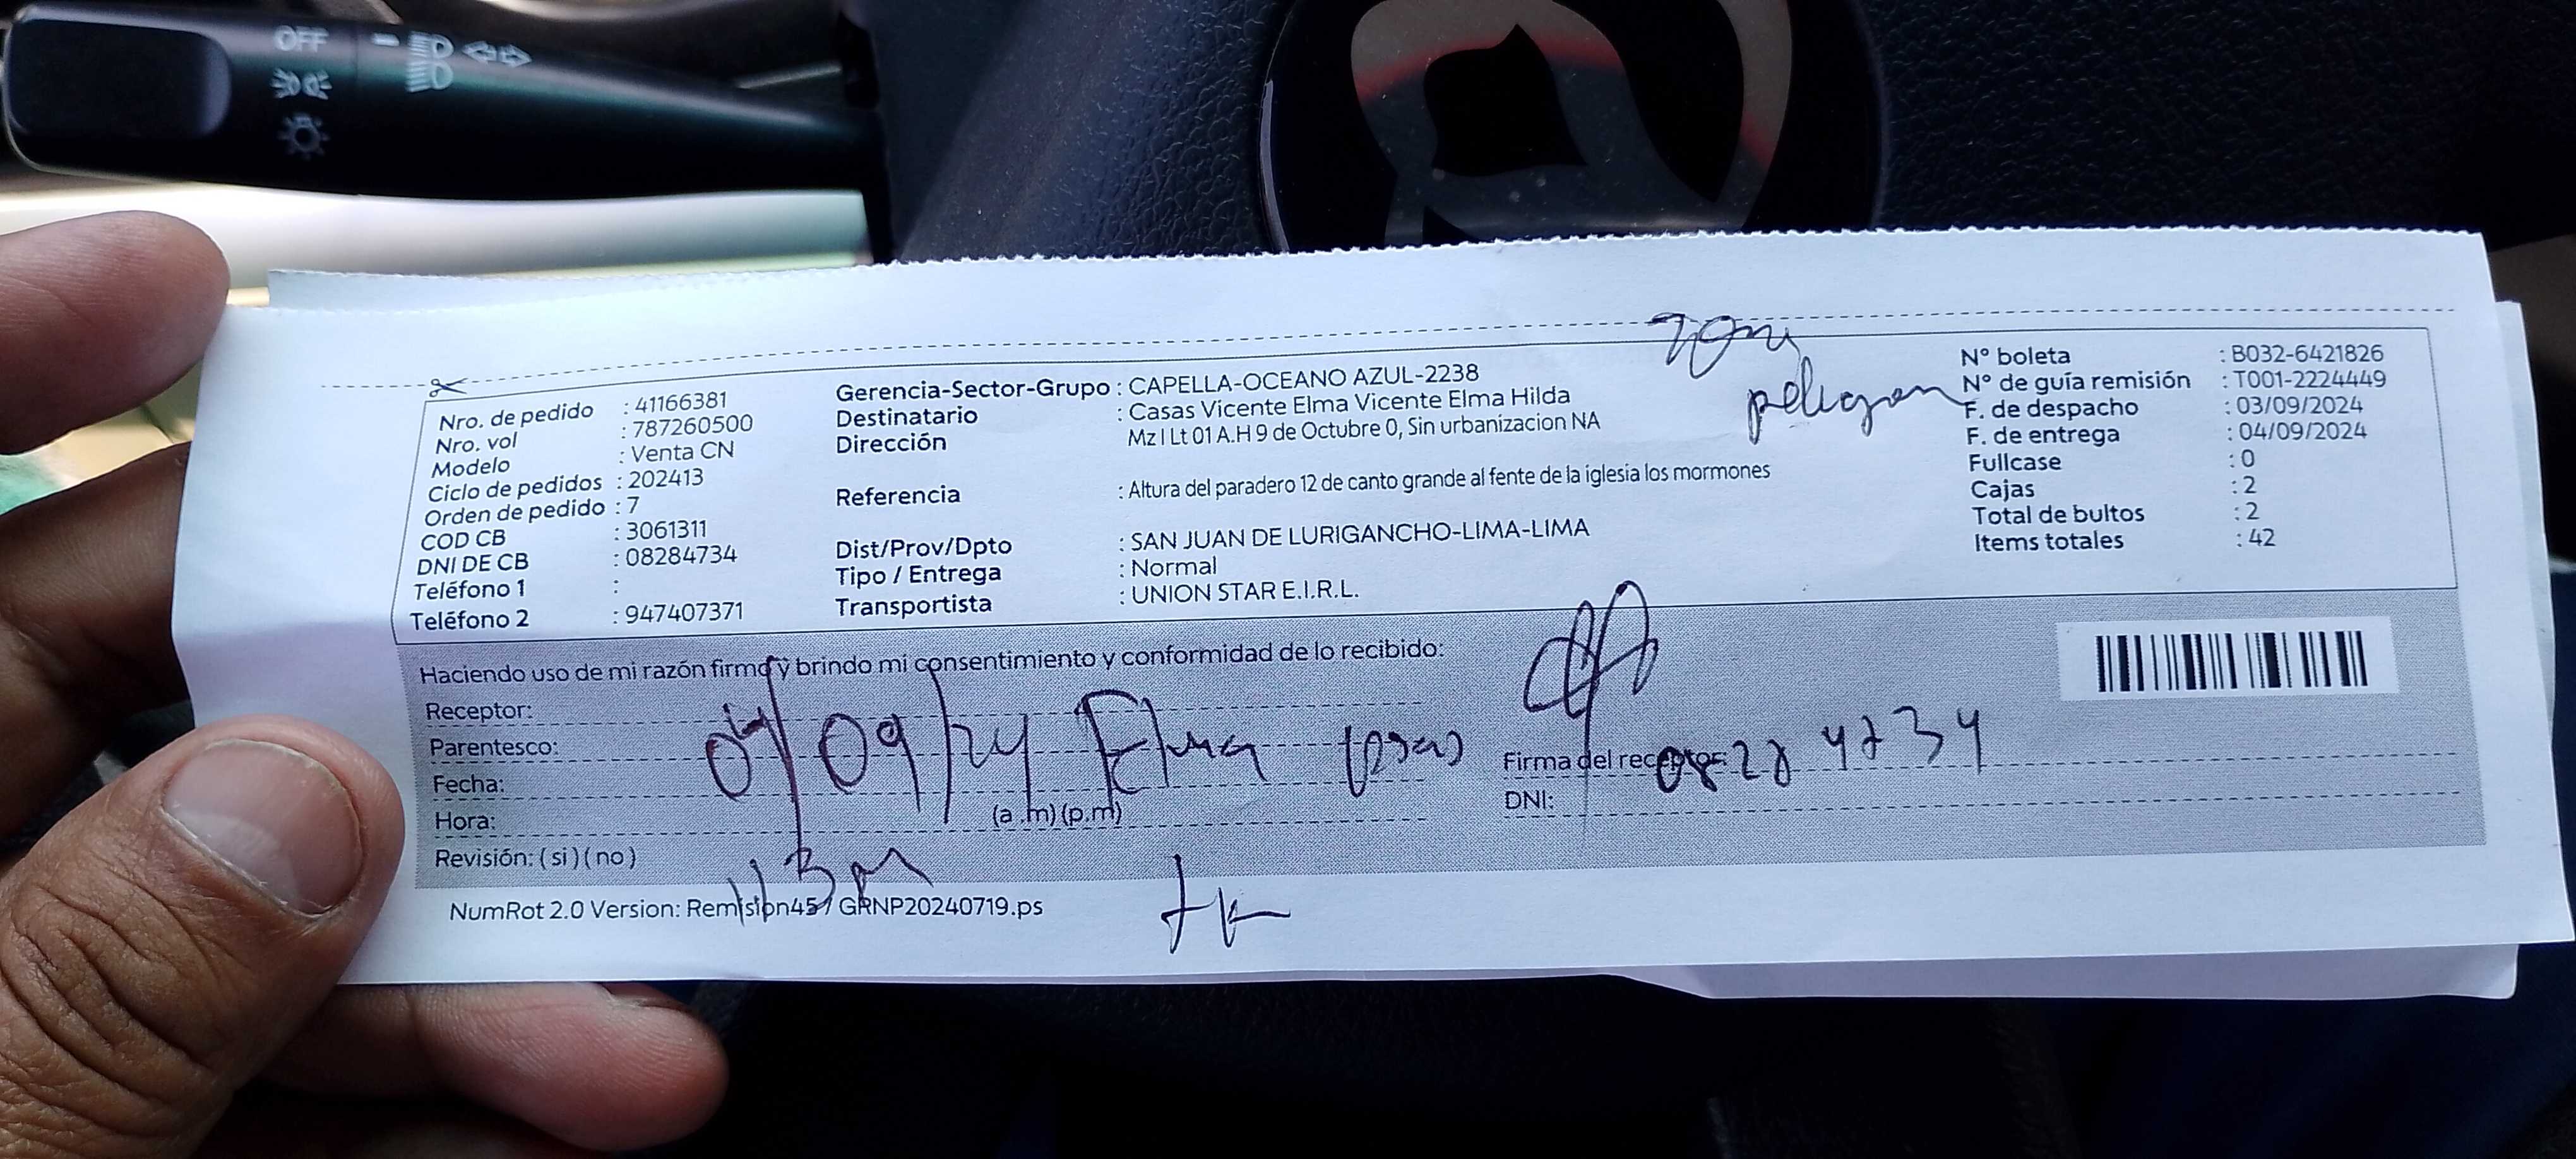 OFF
zona
peligrosa
Nro. de pedido : 41166381
Nro. vol : 787260500
Modelo : Venta CN
Ciclo de pedidos : 202413
Orden de pedido : 7
COD CB : 3061311
DNI DE CB : 08284734
Teléfono 1 :
Teléfono 2 : 947407371
Gerencia-Sector-Grupo : CAPELLA-OCEANO AZUL-2238
Destinatario : Casas Vicente Elma Vicente Elma Hilda
Dirección Mz I Lt 01 A.H 9 de Octubre 0, Sin urbanizacion NA
Referencia : Altura del paradero 12 de canto grande al fente de la iglesia los mormones
Dist/Prov/Dpto : SAN JUAN DE LURIGANCHO-LIMA-LIMA
Tipo / Entrega : Normal
Transportista : UNION STAR E.I.R.L.
N° boleta : B032-6421826
N° de guía remisión : T001-2224449
F. de despacho : 03/09/2024
F. de entrega : 04/09/2024
Fullcase : 0
Cajas : 2
Total de bultos : 2
Items totales : 42
Haciendo uso de mi razón firmo y brindo mi consentimiento y conformidad de lo recibido:
Receptor:
Parentesco:
04/09/24 Elma Casas
Fecha:
Hora: (a .m) (p.m)
Revisión: ( si ) ( no )
Firma del receptor: 08284734
DNI:
NumRot 2.0 Version: Remision457 GRNP20240719.ps